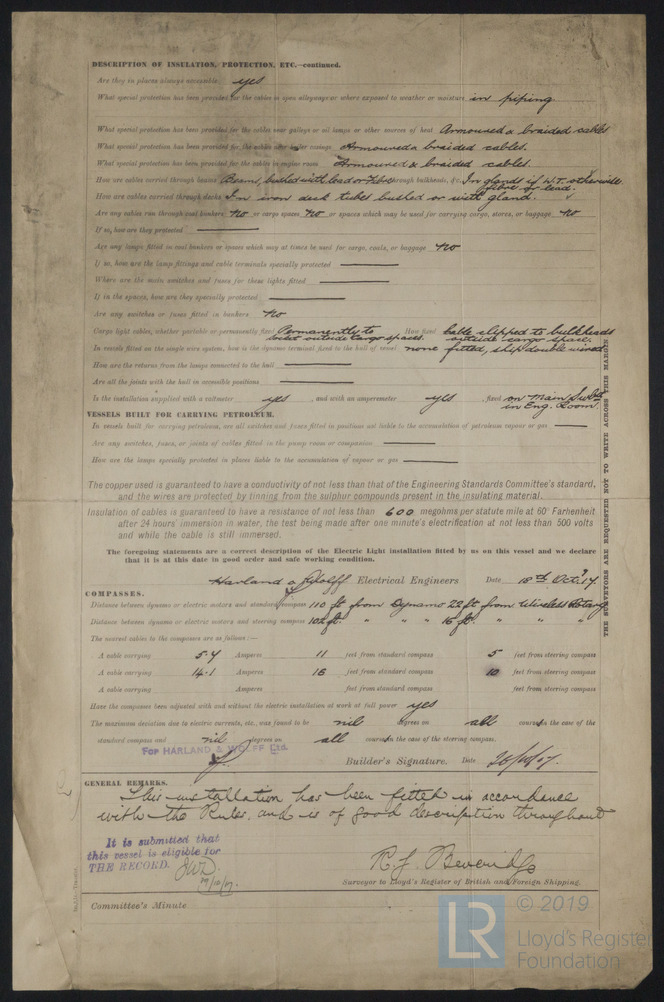 DESCRIPTION OF INSULATION, PROTECTION, ETC.—continued.
Are they in places always accessible yes
What special protection has been provided for the cables in open alleyways or where exposed to weather or moisture in piping
What special protection has been provided for the cables near galleys or oil lamps or other sources of heat Armoured & braided cables
What special protection has been provided for the cables near boiler casings Armoured & braided cables.
What special protection has been provided for the cables in engine room Armoured & braided cables.
How are cables carried through beams Beams, bushed with lead or fibre through bulkheads, &c. In glands if W.T. otherwise
fibre or lead.
How are cables carried through decks In iron deck tubes bushed or with gland.
Are any cables run through coal bunkers No or cargo spaces No or spaces which may be used for carrying cargo, stores, or baggage No
If so, how are they protected
Are any lamps fitted in coal bunkers or spaces which may at times be used for cargo, coals, or baggage No
If so, how are the lamp fittings and cable terminals specially protected
Where are the main switches and fuses for these lights fitted
If in the spaces, how are they specially protected
Are any switches or fuses fitted in bunkers No
Cargo light cables, whether portable or permanently fixed Permanently to How fixed Cable clipped to bulkheads
outside cargo spaces. outside cargo space.
In vessels fitted on the single wire system, how is the dynamo terminal fixed to the hull of vessel none fitted, ship double wired
How are the returns from the lamps connected to the hull
Are all the joints with the hull in accessible positions
Is the installation supplied with a voltmeter yes , and with an amperemeter yes , fixed on Main Swbd
in Eng. Room.
VESSELS BUILT FOR CARRYING PETROLEUM.
In vessels built for carrying petroleum, are all switches and fuses fitted in positions not liable to the accumulation of petroleum vapour or gas
Are any switches, fuses, or joints of cables fitted in the pump room or companion
How are the lamps specially protected in places liable to the accumulation of vapour or gas
The copper used is guaranteed to have a conductivity of not less than that of the Engineering Standards Committee's standard,
and the wires are protected by tinning from the sulphur compounds present in the insulating material.
Insulation of cables is guaranteed to have a resistance of not less than 600 megohms per statute mile at 60° Farhenheit
after 24 hours' immersion in water, the test being made after one minute's electrification at not less than 500 volts
and while the cable is still immersed.
The foregoing statements are a correct description of the Electric Light installation fitted by us on this vessel and we declare
that it is at this date in good order and safe working condition.
Harland & Wolff Electrical Engineers Date 18th Oct. 17
COMPASSES.
Distance between dynamo or electric motors and standard compass 110 ft from Dynamo 22 ft from Wireless Rotary
Distance between dynamo or electric motors and steering compass 102 ft. " " " 16 ft. " " "
The nearest cables to the compasses are as follows:—
A cable carrying 5.4 Amperes 11 feet from standard compass 5 feet from steering compass
A cable carrying 14.1 Amperes 16 feet from standard compass 10 feet from steering compass
A cable carrying Amperes feet from standard compass feet from steering compass
Have the compasses been adjusted with and without the electric installation at work at full power yes
The maximum deviation due to electric currents, etc., was found to be nil degrees on all courses in the case of the
standard compass and nil degrees on all courses in the case of the steering compass.
For HARLAND & WOLFF Ltd.
Builder's Signature. Date 26/10/17.
GENERAL REMARKS.
This installation has been fitted in accordance
with the Rules, and is of good description throughout
It is submitted that
this vessel is eligible for
THE RECORD.
R. J. Beveridge
Surveyor to Lloyd's Register of British and Foreign Shipping.
Committee's Minute
THE SURVEYORS ARE REQUESTED NOT TO WRITE ACROSS THIS MARGIN
LR
© 2019
Lloyd's Register
Foundation